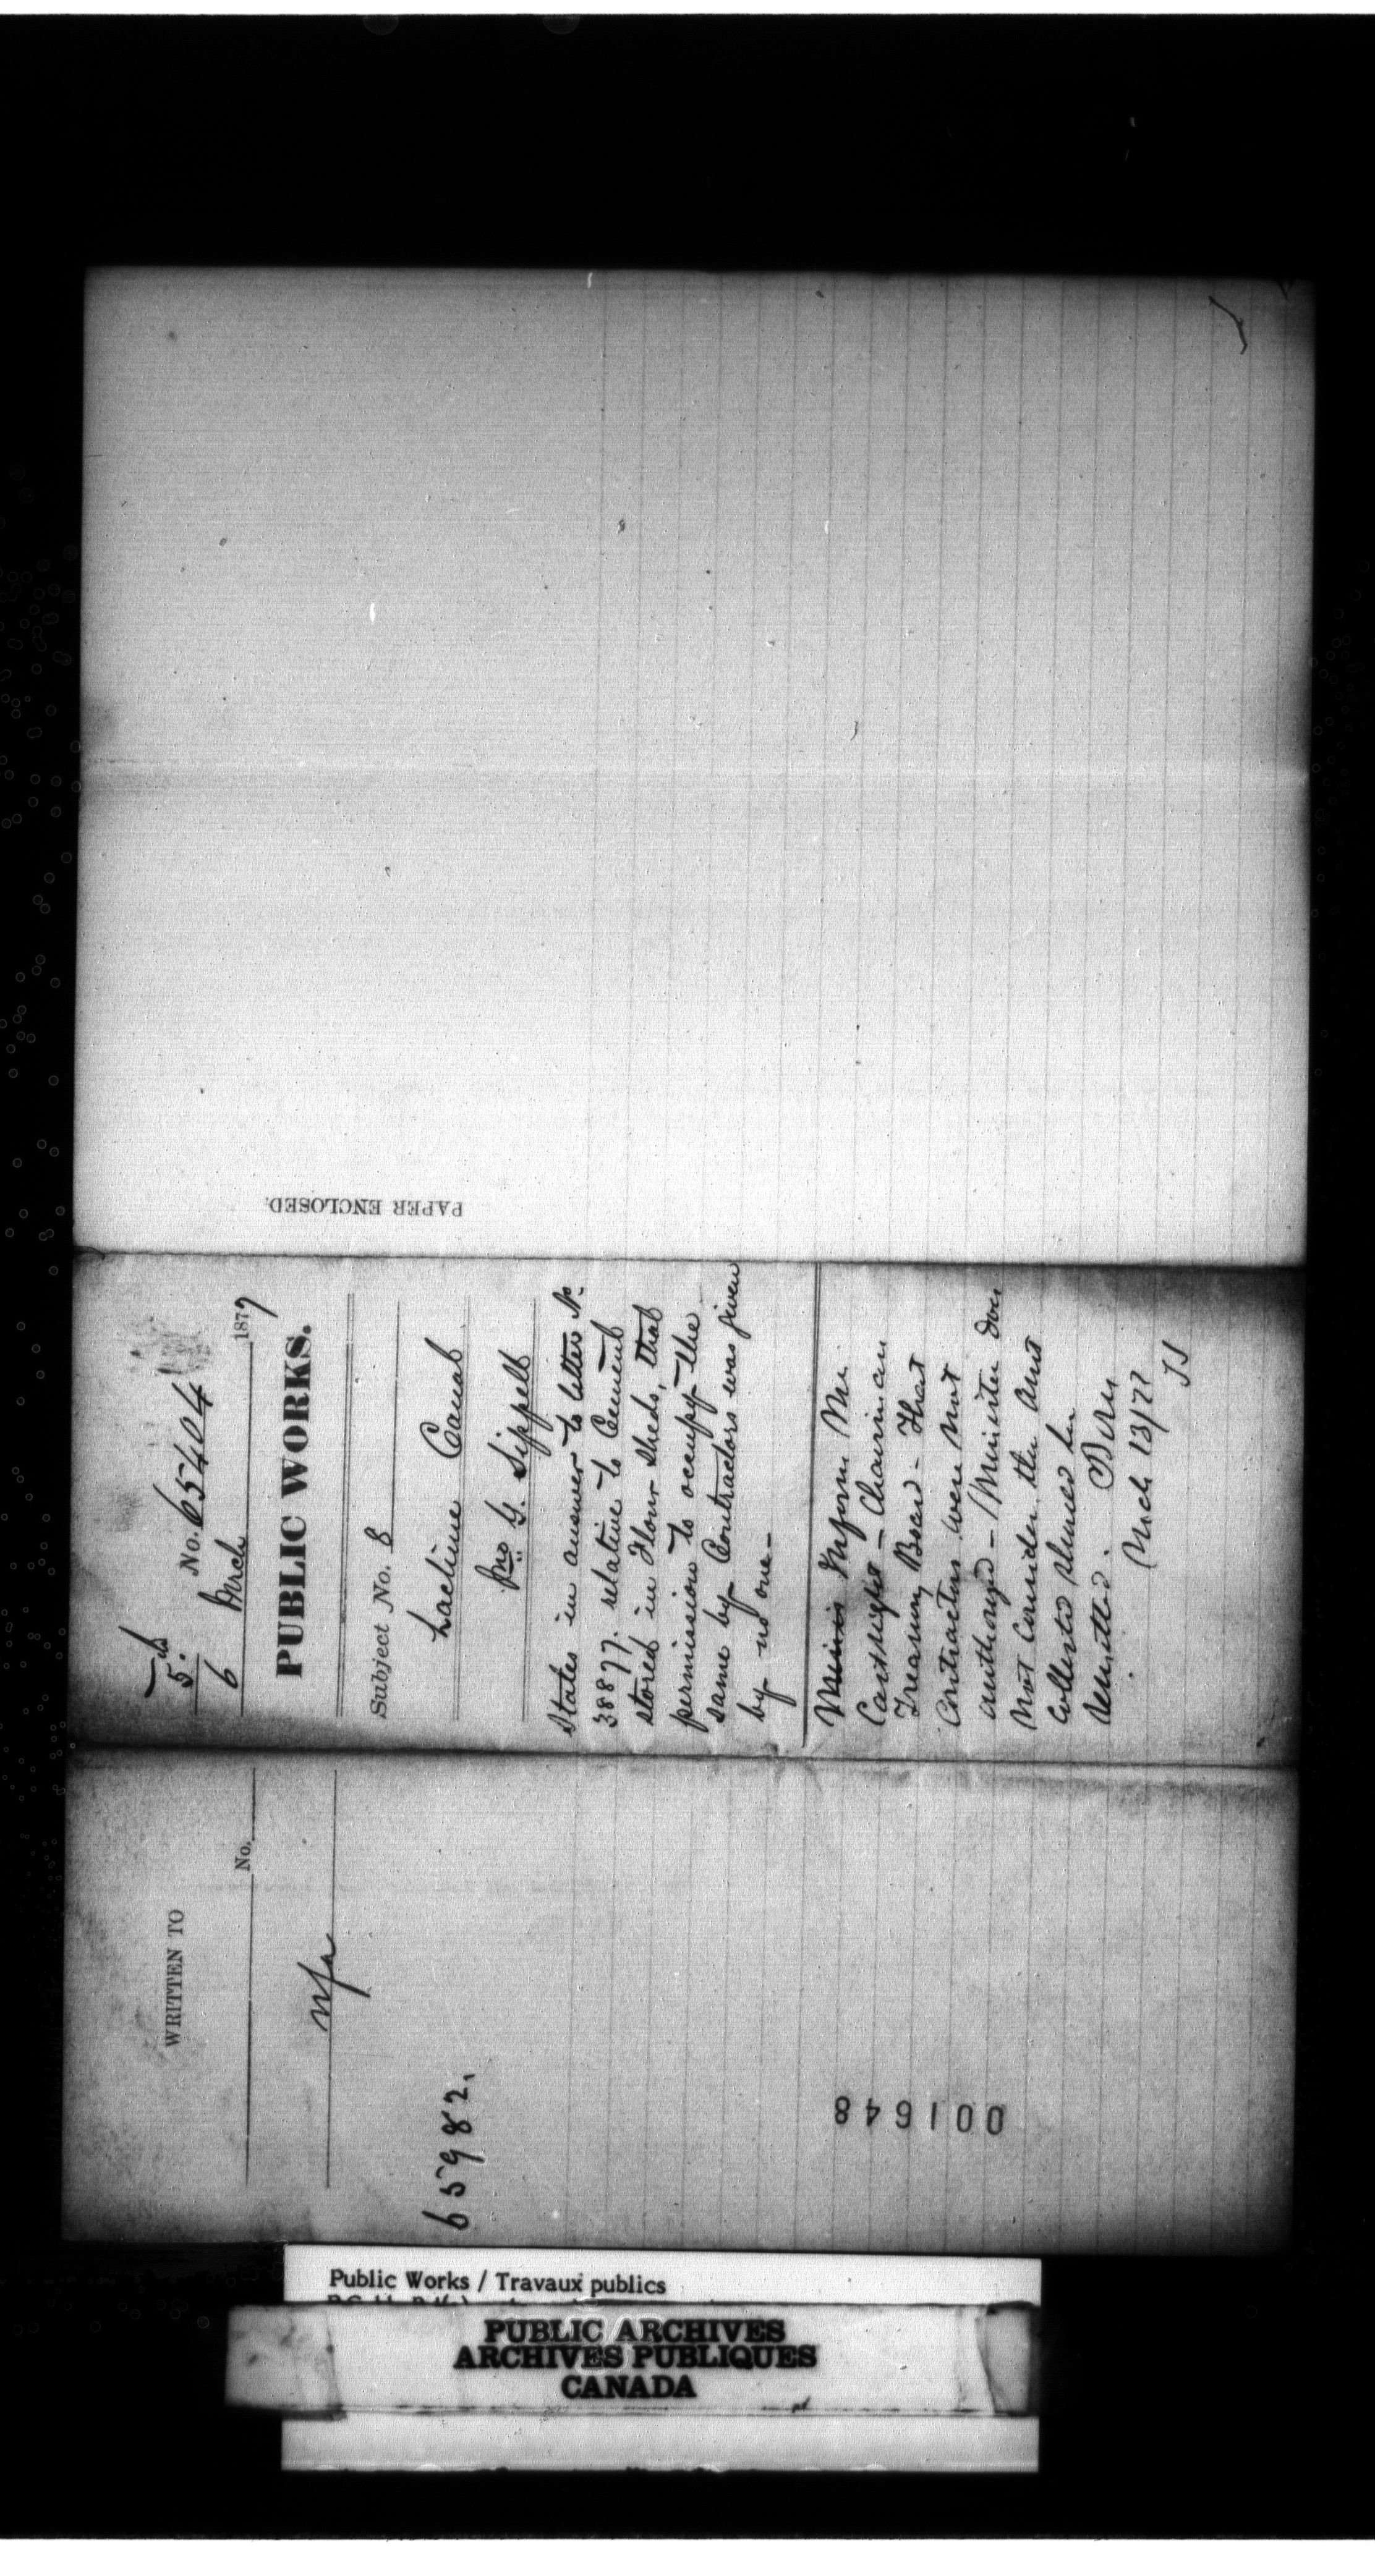 5th
6 No. 65404
Mrch 1877
PUBLIC WORKS.
Subject No. 8
Lachine Canal
Jno G. Sippell
States in answer to letter No.
38877. relative to Cement
stored in Flour Sheds, that
permission to occupy the
same by Contractors was given
by no one-
Inform Mr.
Cartwright - Chairman
Treasury Board - That
Contractors were not
authorized - Minister does
not consider the amt
collected should be
remitted.
Mch 13/77
PAPER ENCLOSED.
WRITTEN TO
No.
nfa
65982.
001648
Public Works / Travaux publics
PUBLIC ARCHIVES
ARCHIVES PUBLIQUES
CANADA